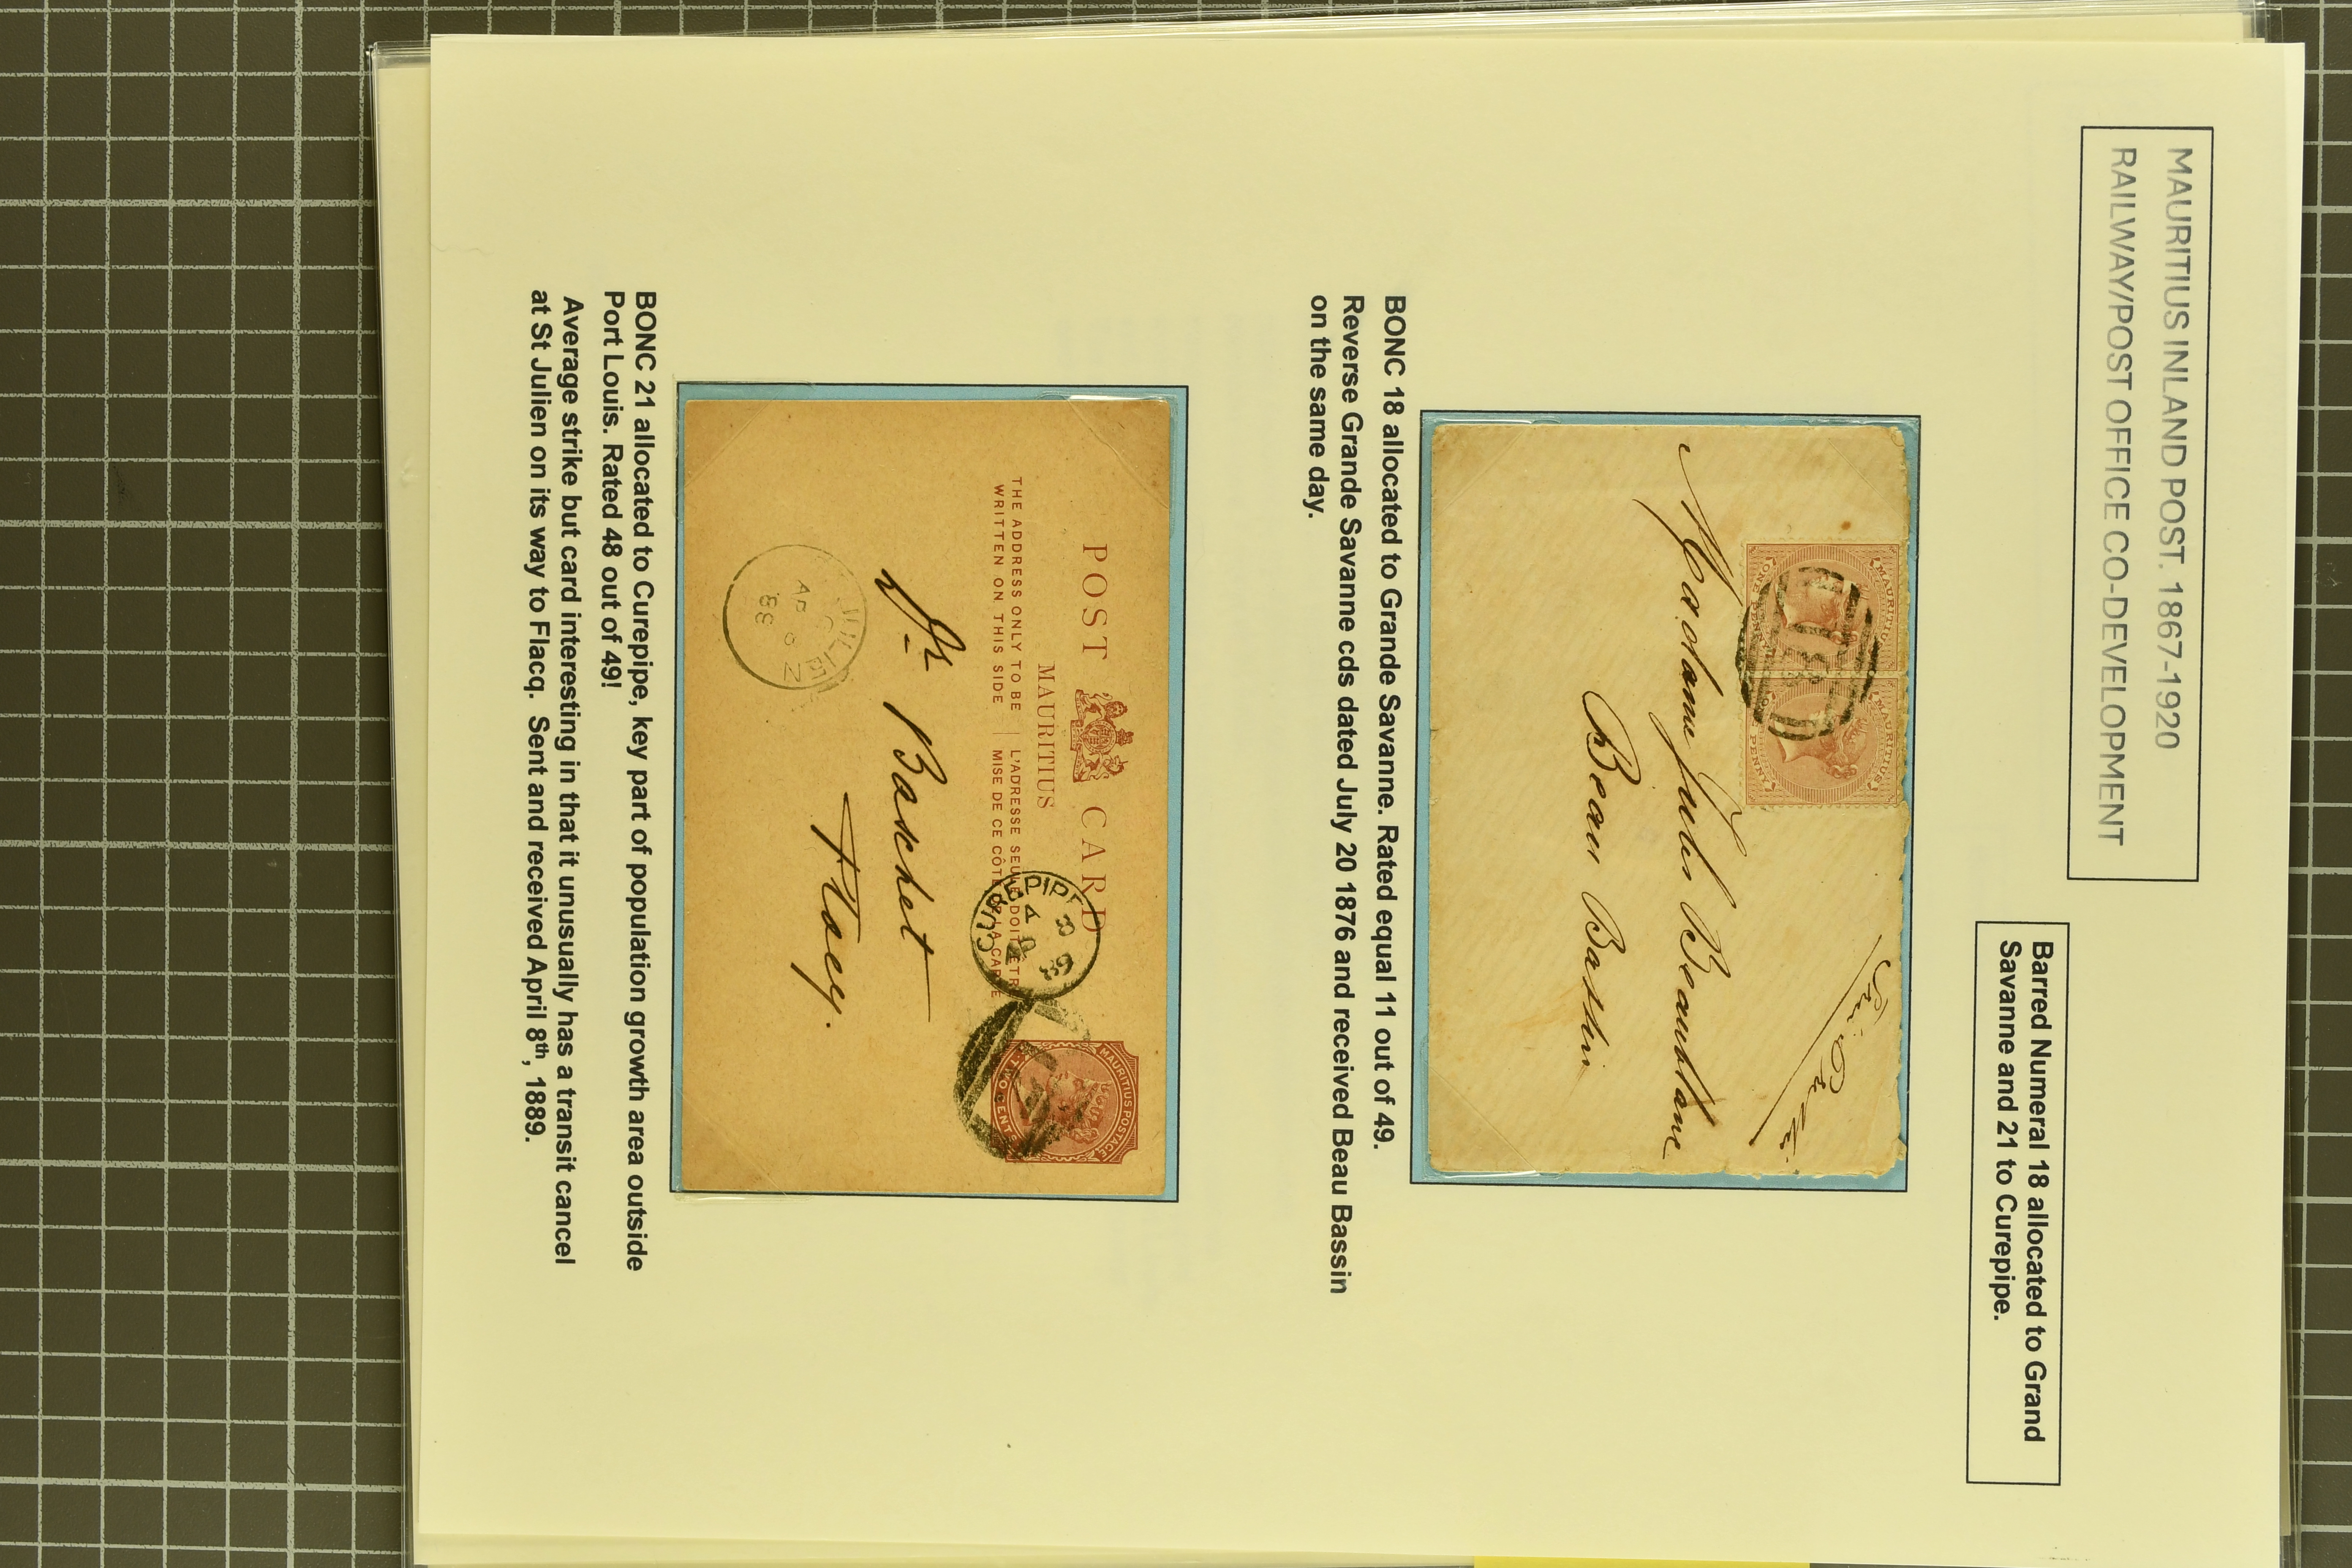 MAURITIUS INLAND POST. 1867-1920
RAILWAY/POST OFFICE CO-DEVELOPMENT
Barred Numeral 18 allocated to Grand
Savanne and 21 to Curepipe.
MAURITIUS
ONE PENNY
MAURITIUS
PENNY
18
Madame Jules
Beau Bassin
BONC 18 allocated to Grande Savanne. Rated equal 11 out of 49.
Reverse Grande Savanne cds dated July 20 1876 and received Beau Bassin
on the same day.
POST CARD
MAURITIUS
THE ADDRESS ONLY TO BE
WRITTEN ON THIS SIDE
L'ADRESSE SEULE DOIT ÊTRE
MISE DE CE CÔTÉ DE LA CARTE
MAURITIUS POSTAGE
TWO CENTS
CUREPIPE
AP 8
89
Dr Baschet
Flacq.
JULIEN
AP
BONC 21 allocated to Curepipe, key part of population growth area outside
Port Louis. Rated 48 out of 49!
Average strike but card interesting in that it unusually has a transit cancel
at St Julien on its way to Flacq. Sent and received April 8th, 1889.